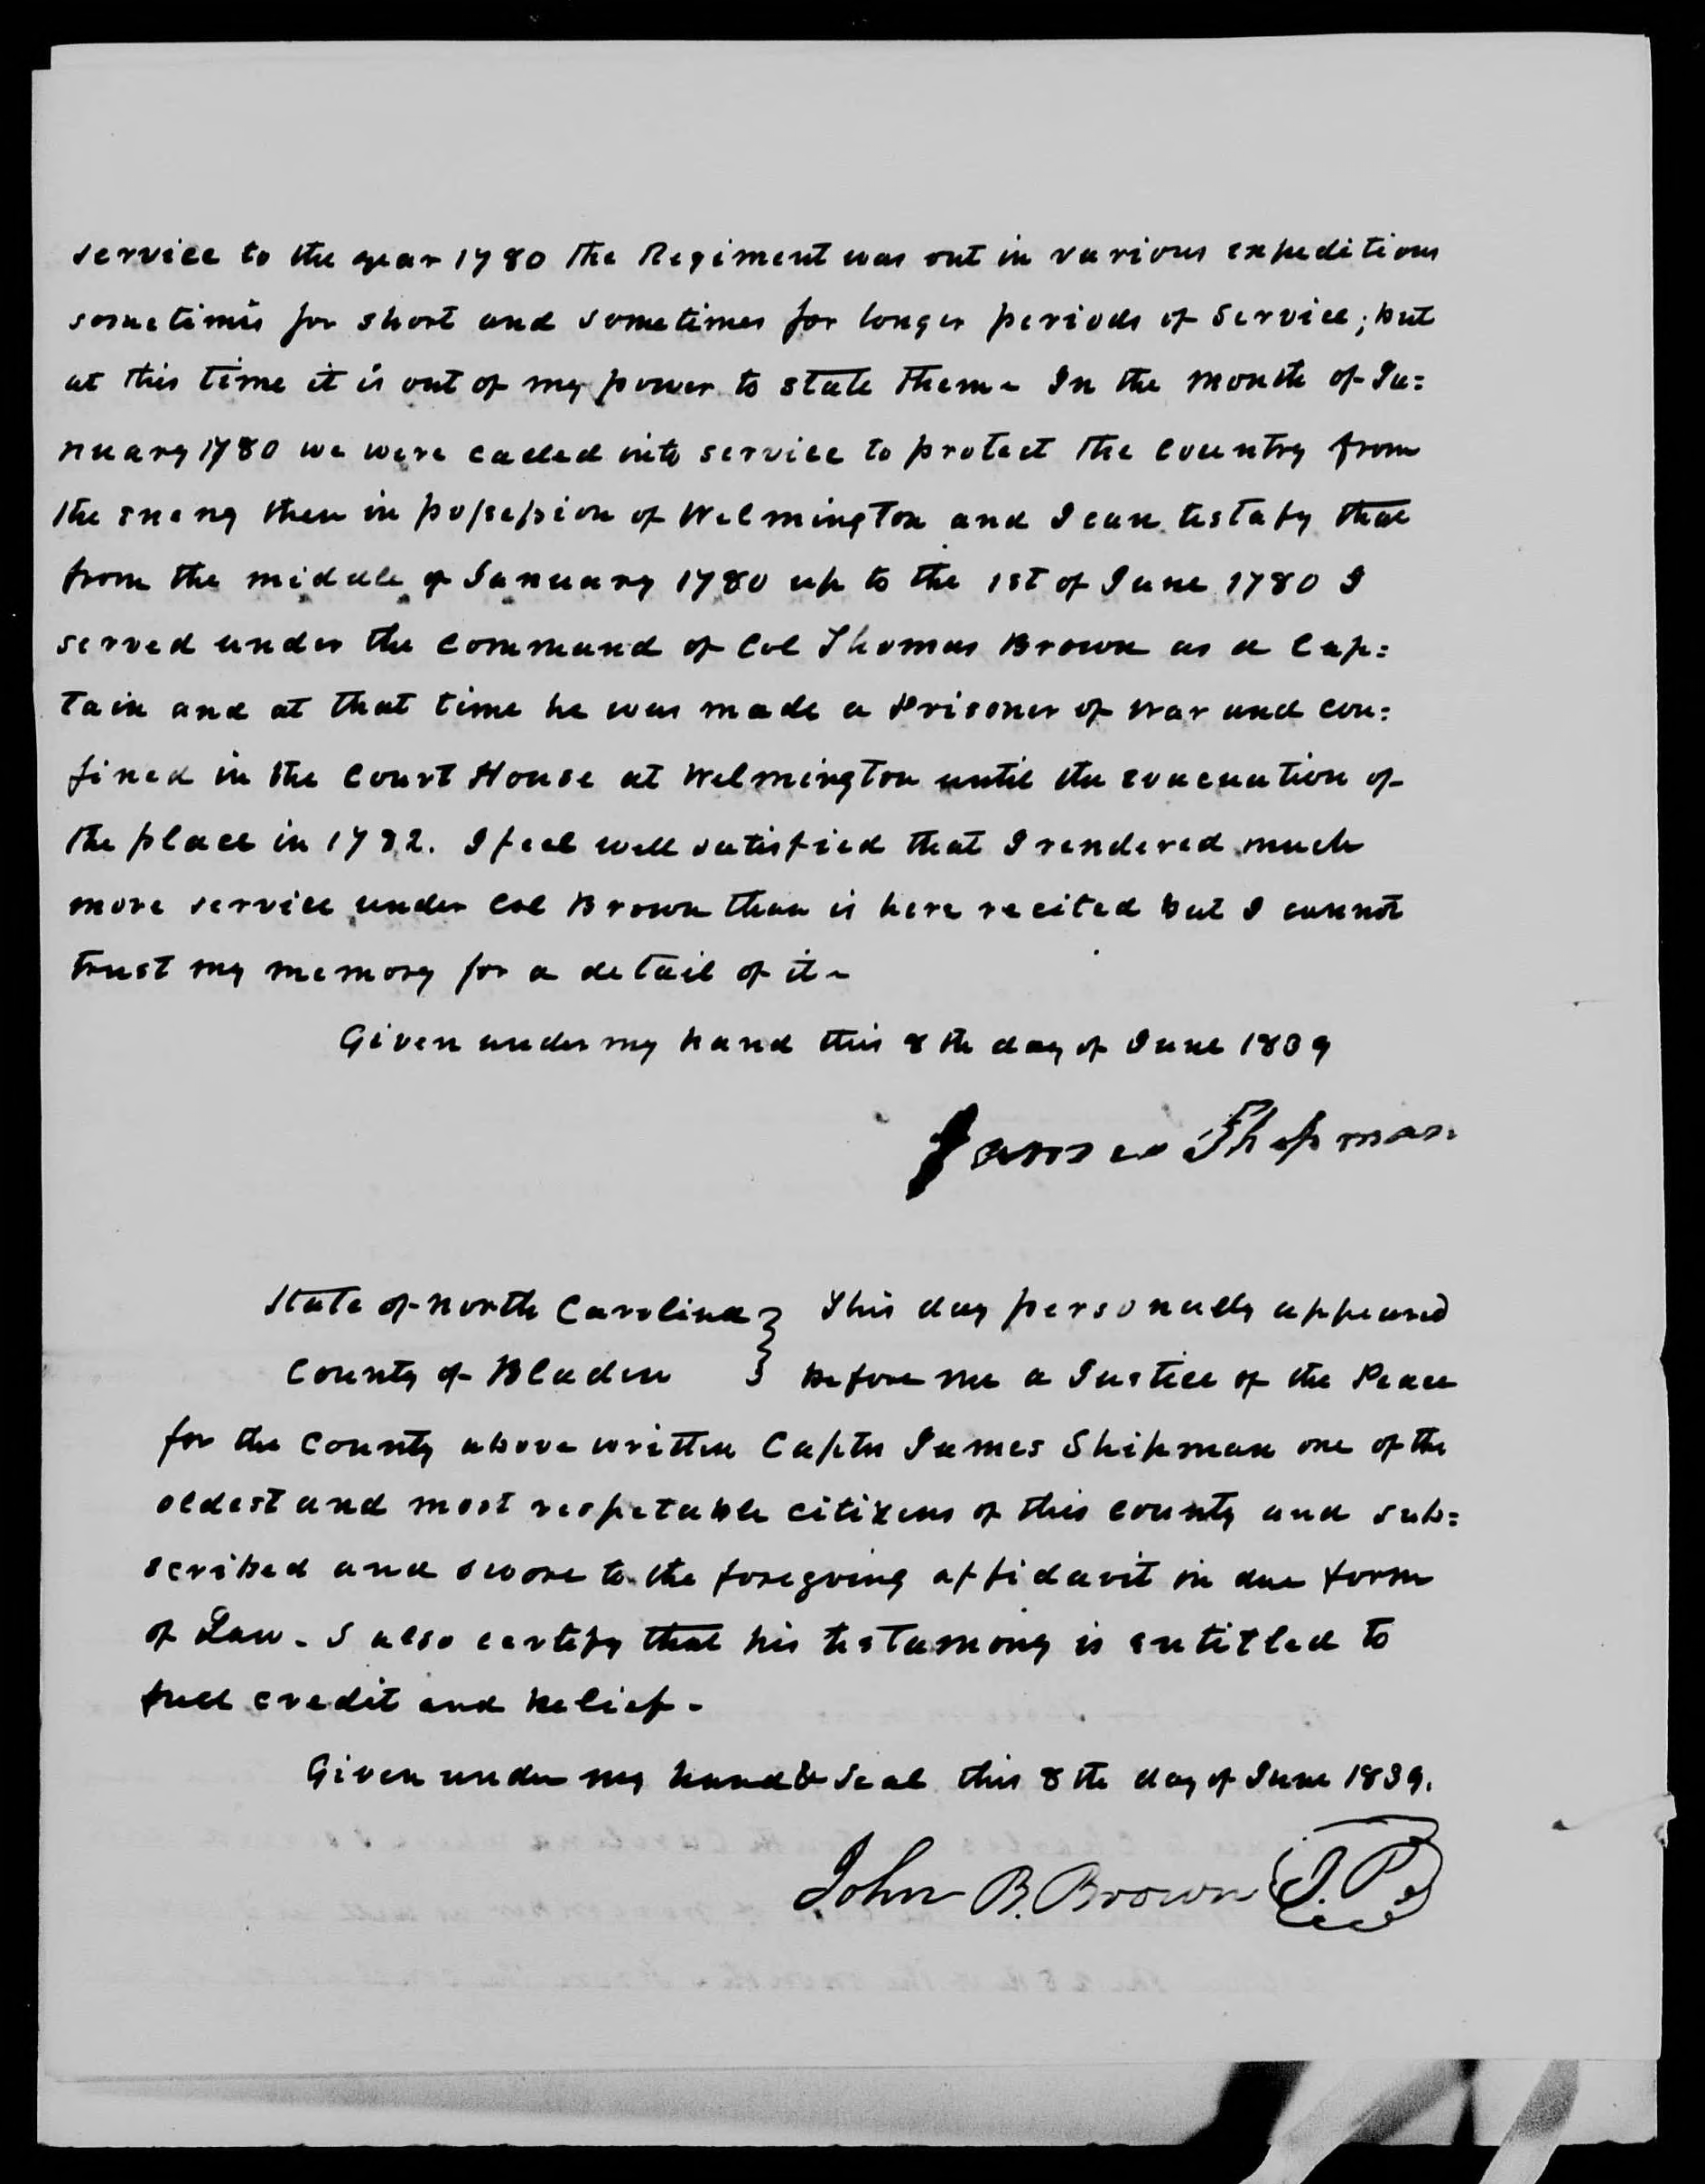 service to the year 1780 The Regiment was out in various expeditions
sometimes for short and sometimes for longer periods of service; but
at this time it is out of my power to state them - In the month of Ja=
nuary 1780 we were called into service to protect the country from
the enemy then in possession of Wilmington and I can testafy that
from the middle of January 1780 up to the 1st of June 1780 I
served under the command of Col Thomas Brown as a Cap=
tain and at that time he was made a Prisoner of war and con=
fined in the Court House at Wilmington until the evacuation of
the place in 1782. I feel well satisfied that I rendered much
more service under Col Brown than is here recited but I cannot
trust my memory for a detail of it -
Given under my hand this 8th day of June 1839
James Shipman
State of North Carolina } This day personally appeared
County of Bladen } before me a Justice of the Peace
for the County above written Captn James Shipman one of the
oldest and most respetable citizens of this county and sub=
scribed and swore to the foregoing affidavit in due form
of Law - I also certify that his testamony is entitled to
full credit and belief -
Given under my hand & seal this 8th day of June 1839.
John B. Brown J.P.